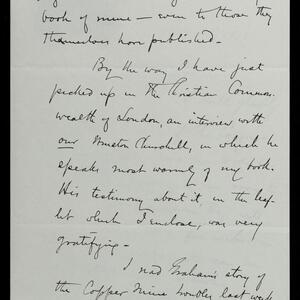 book of mine — even to those they
themselves have published.
By the way I have just
picked up in The Christian Common-
wealth of London, an interview with
our Winston Churchill, in which he
speaks most warmly of my book.
His testimony about it, in the leaf-
let which I enclose, was very
gratifying —
I read Graham's story of
the Copper Mine troubles last week